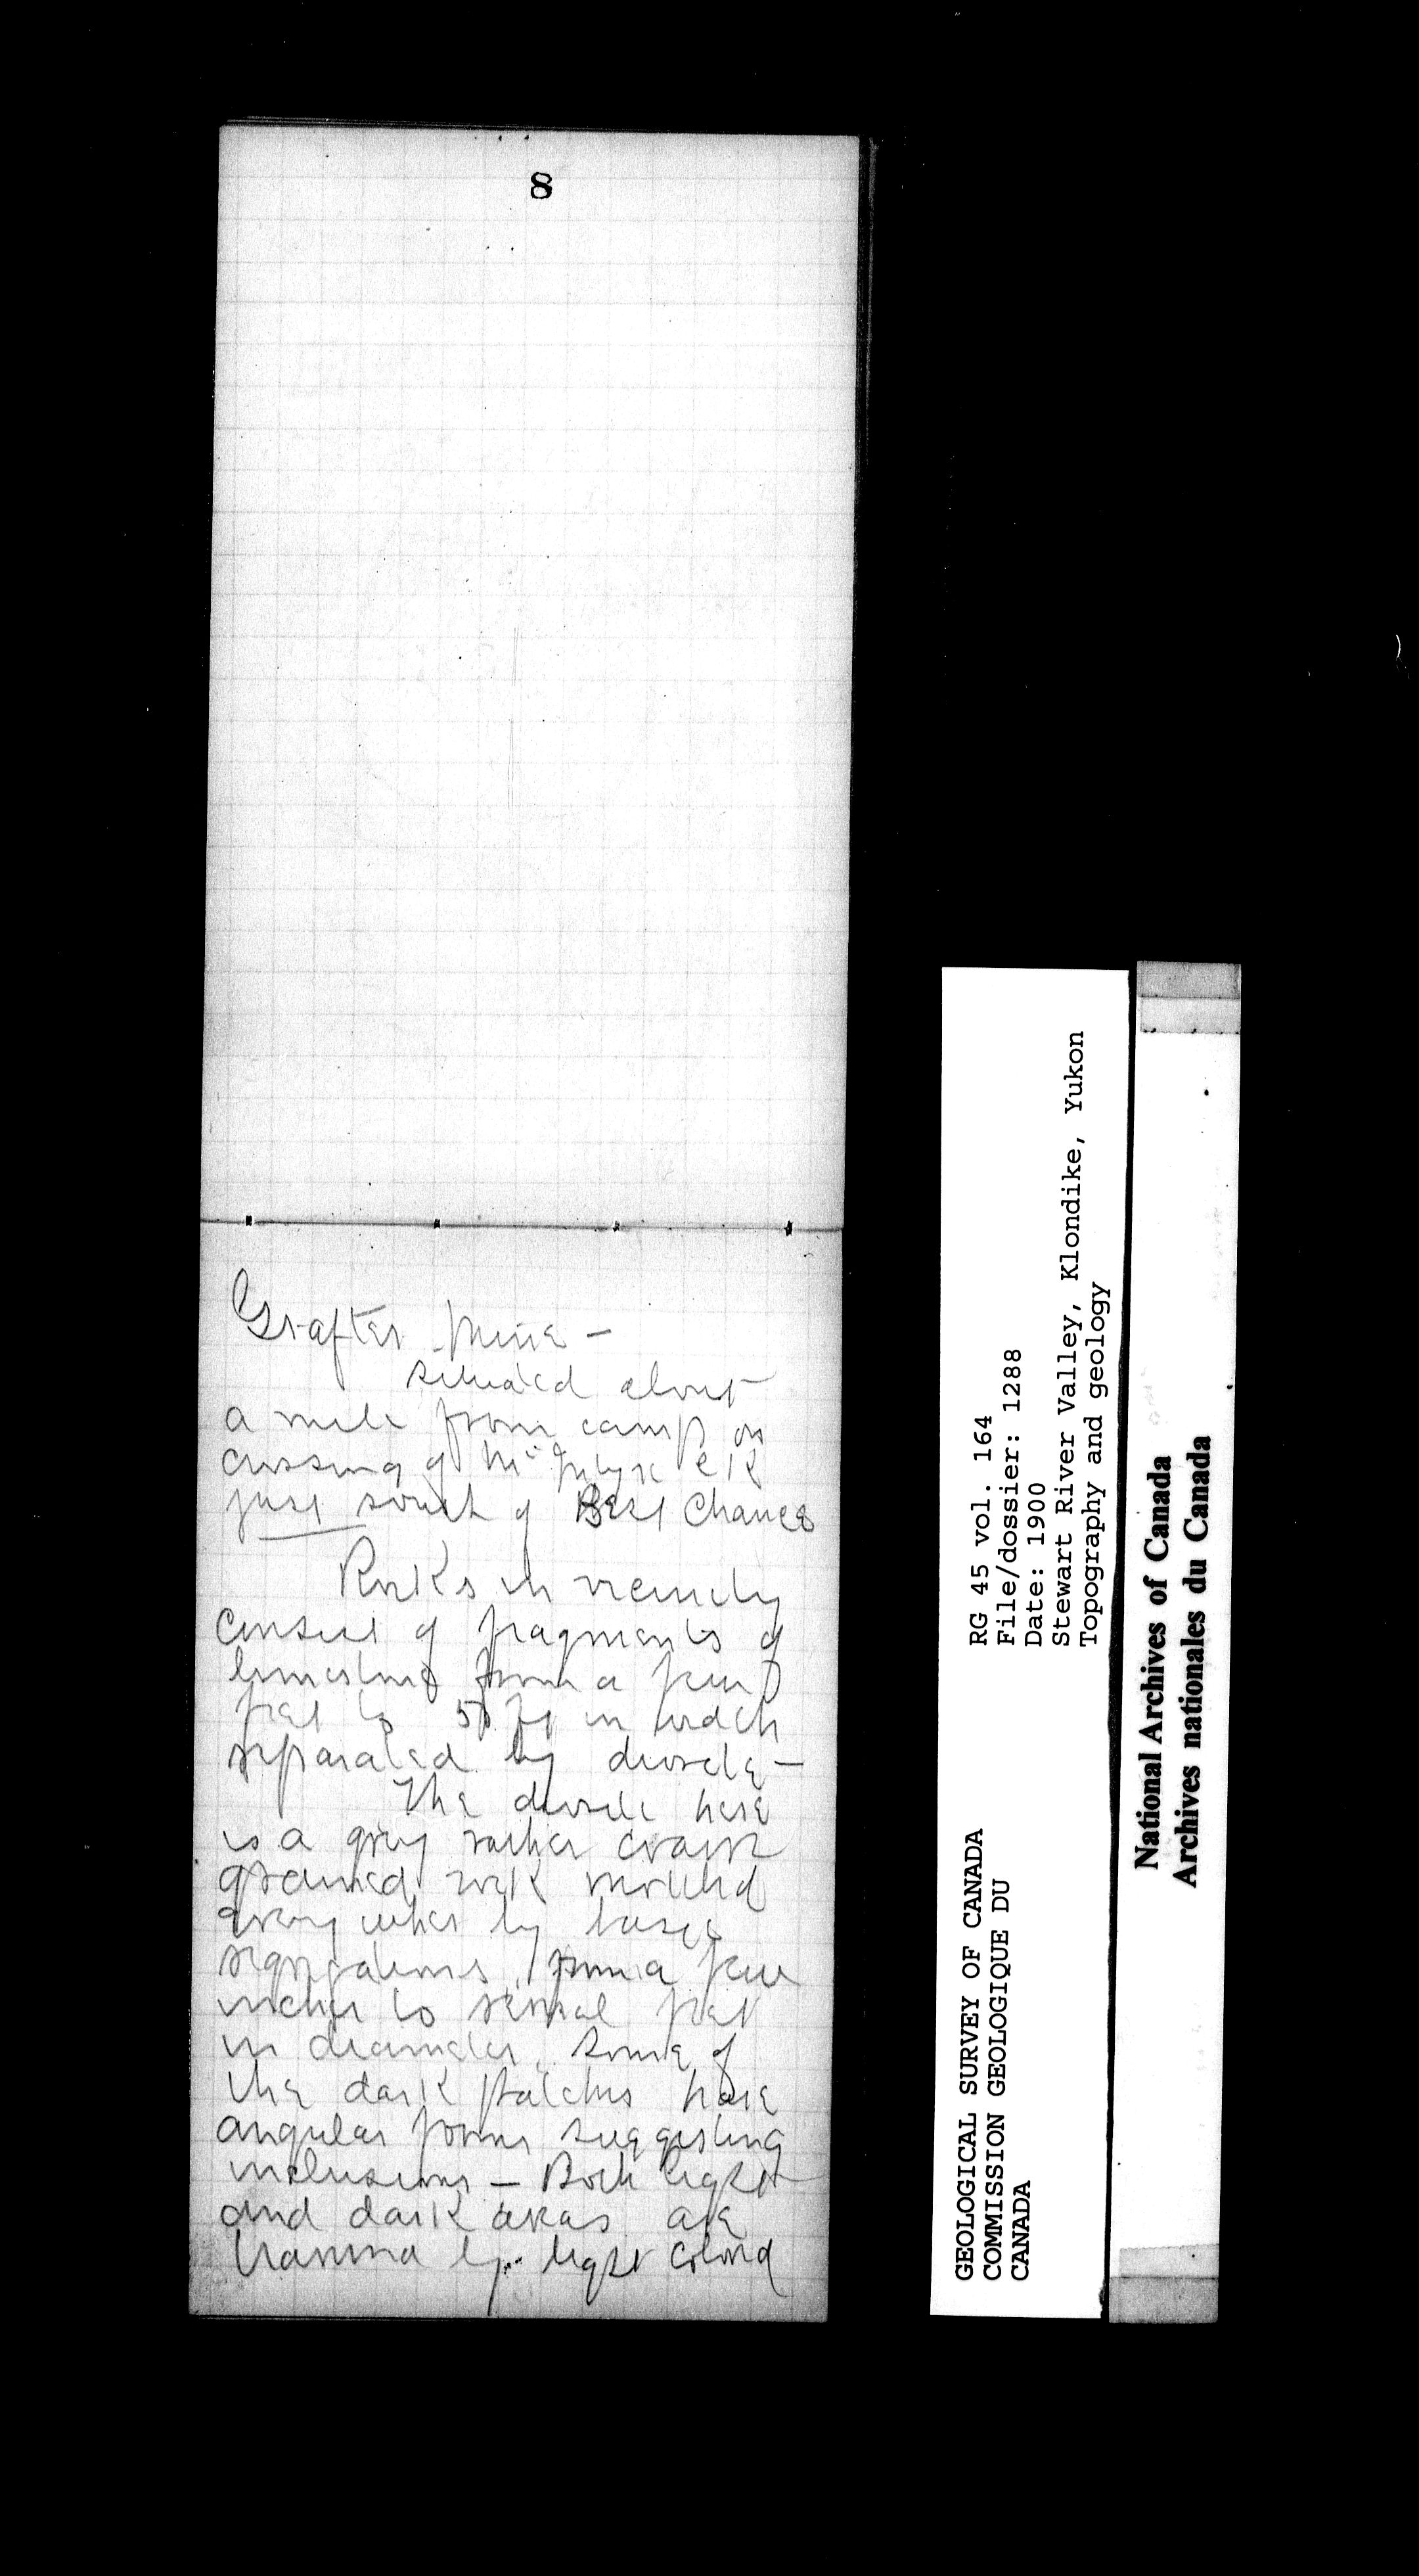 8
Grafter Mine —
situated about
a mile from camp on
crossing of McIntyre Ck
just south of Best Chance
Rocks in vicinity
consist of fragments of
limestone from a few
feet to 50 ft in width
separated by diorite —
The diorite here
is a grey rather coarse
grained rock mottled
every where by basic
segregations from a few
inches to several feet
in diameter. Some of
the dark patches have
angular forms suggesting
inclusions — Both light
and dark areas are
traversed by light colored
GEOLOGICAL SURVEY OF CANADA
COMMISSION GEOLOGIQUE DU
CANADA
RG 45 vol. 164
File/dossier: 1288
Date: 1900
Stewart River Valley, Klondike, Yukon
Topography and geology
National Archives of Canada
Archives nationales du Canada